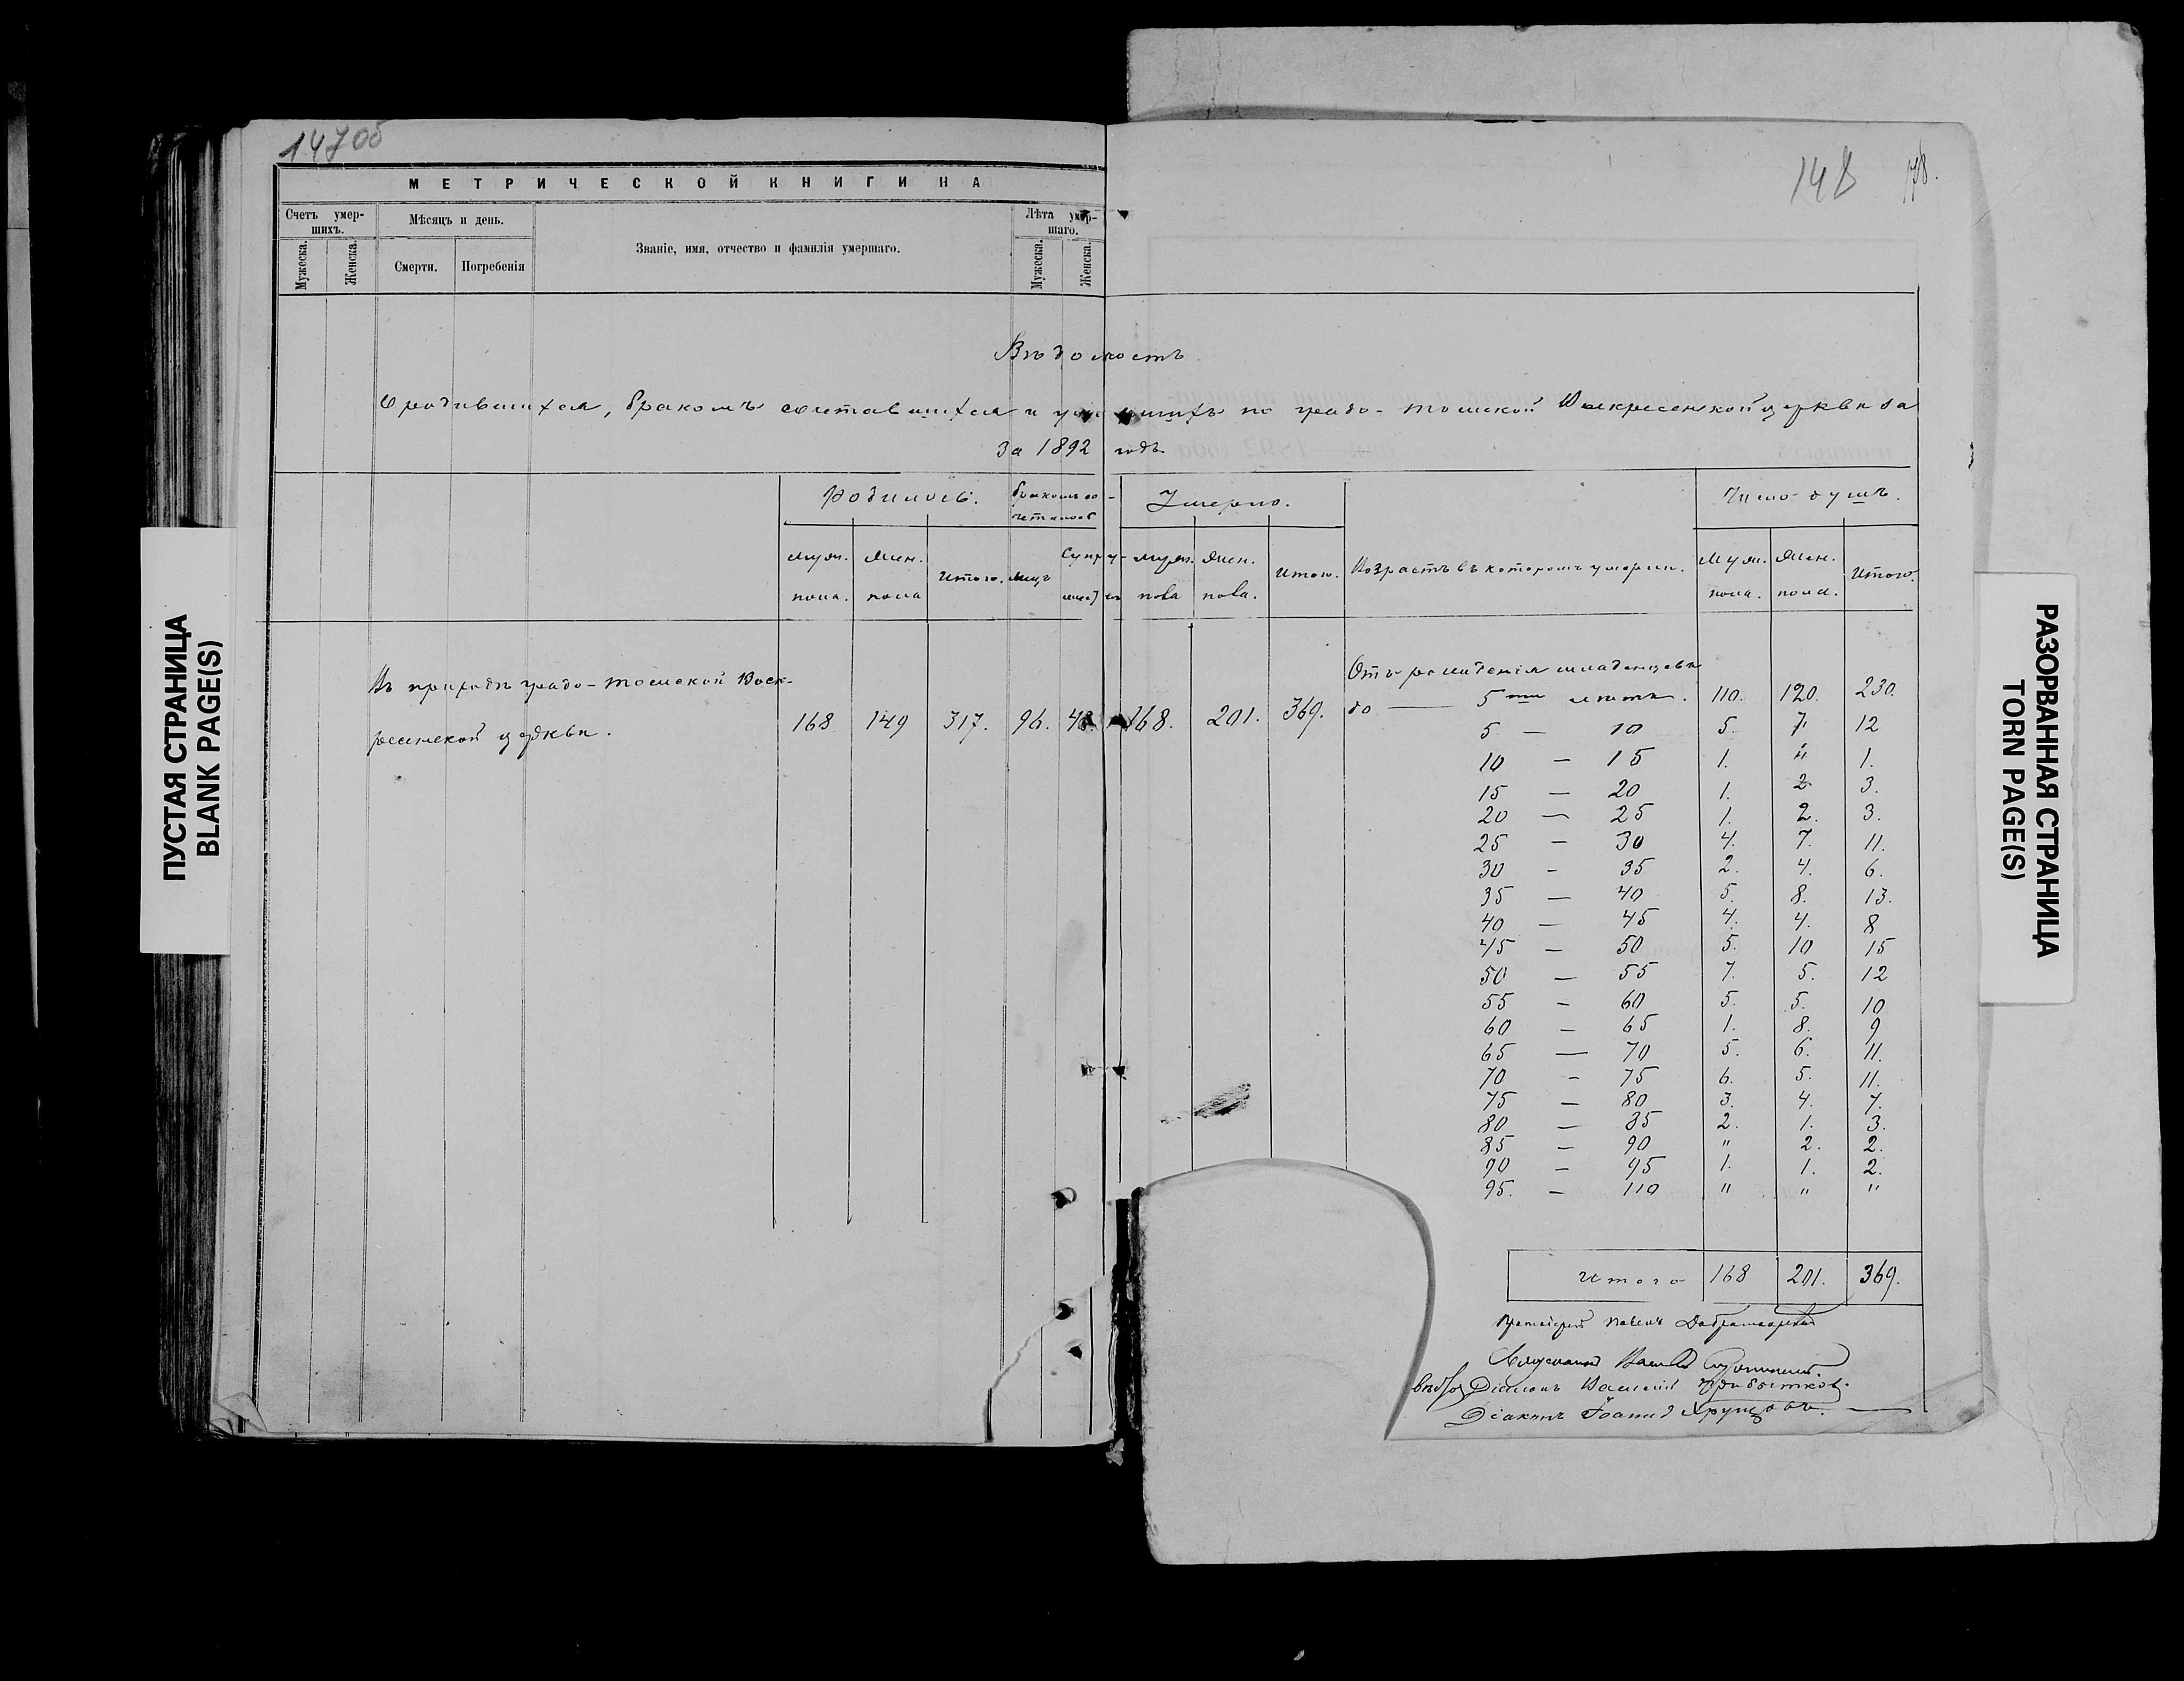 14705
148
МЕТРИЧЕСКОЙ КНИГИ НА
Счетъ умер-
шихъ.
Мужеска.
Женска.
Мѣсяцъ и день.
Смерти.
Погребенія
Званіе, имя, отчество и фамилія умершаго.
Лѣта умер-
шаго.
Мужеска.
Женска.
Вѣдомость
О родившихся, бракомъ сочетавшихся и умершихъ по градо-Томской Воскресенской церкви за
За 1892 годъ
Родилось.
Бракомъ со-
четалось
Умерло.
Число душъ.
муж.
пола.
Жен.
пола
Итого.
лицъ
Супру-
муж.
пола
Жен.
пола.
Итого.
Возрастъ въ которомъ умерли.
Муж.
пола.
Жен.
пола.
Итого.
Въ приходѣ градо-Томской Воск-
ресенской церкви.
168 149 317. 96. 48. 168. 201. 369.
Отъ рожденія младенцевъ
до — 5ти лѣтъ. 110. 120. 230.
5 — 10 5. 7. 12
10 — 15 1. " 1.
15 — 20 1. 2 3.
20 — 25 1. 2. 3.
25 — 30 4. 7. 11.
30 - 35 2. 4. 6.
35 — 40 5. 8. 13.
40 — 45 4. 4. 8
45 — 50 5. 10 15
50 — 55 7. 5. 12
55 - 60 5. 5. 10
60 — 65 1. 8. 9
65 — 70 5. 6. 11.
70 - 75 6. 5. 11.
75 — 80 3. 4. 7.
80 — 85 2. 1. 3.
85 — 90 " 2. 2.
90 — 95 1. 1. 2.
95. — 110 " " "
Итого 168 201. 369.
Протоіерей Павелъ Добротворскій
Діаконъ Василій Прибытков.
Діаконъ Іоаннъ Хрущовъ.
ПУСТАЯ СТРАНИЦА
BLANK PAGE(S)
РАЗОРВАННАЯ СТРАНИЦА
TORN PAGE(S)